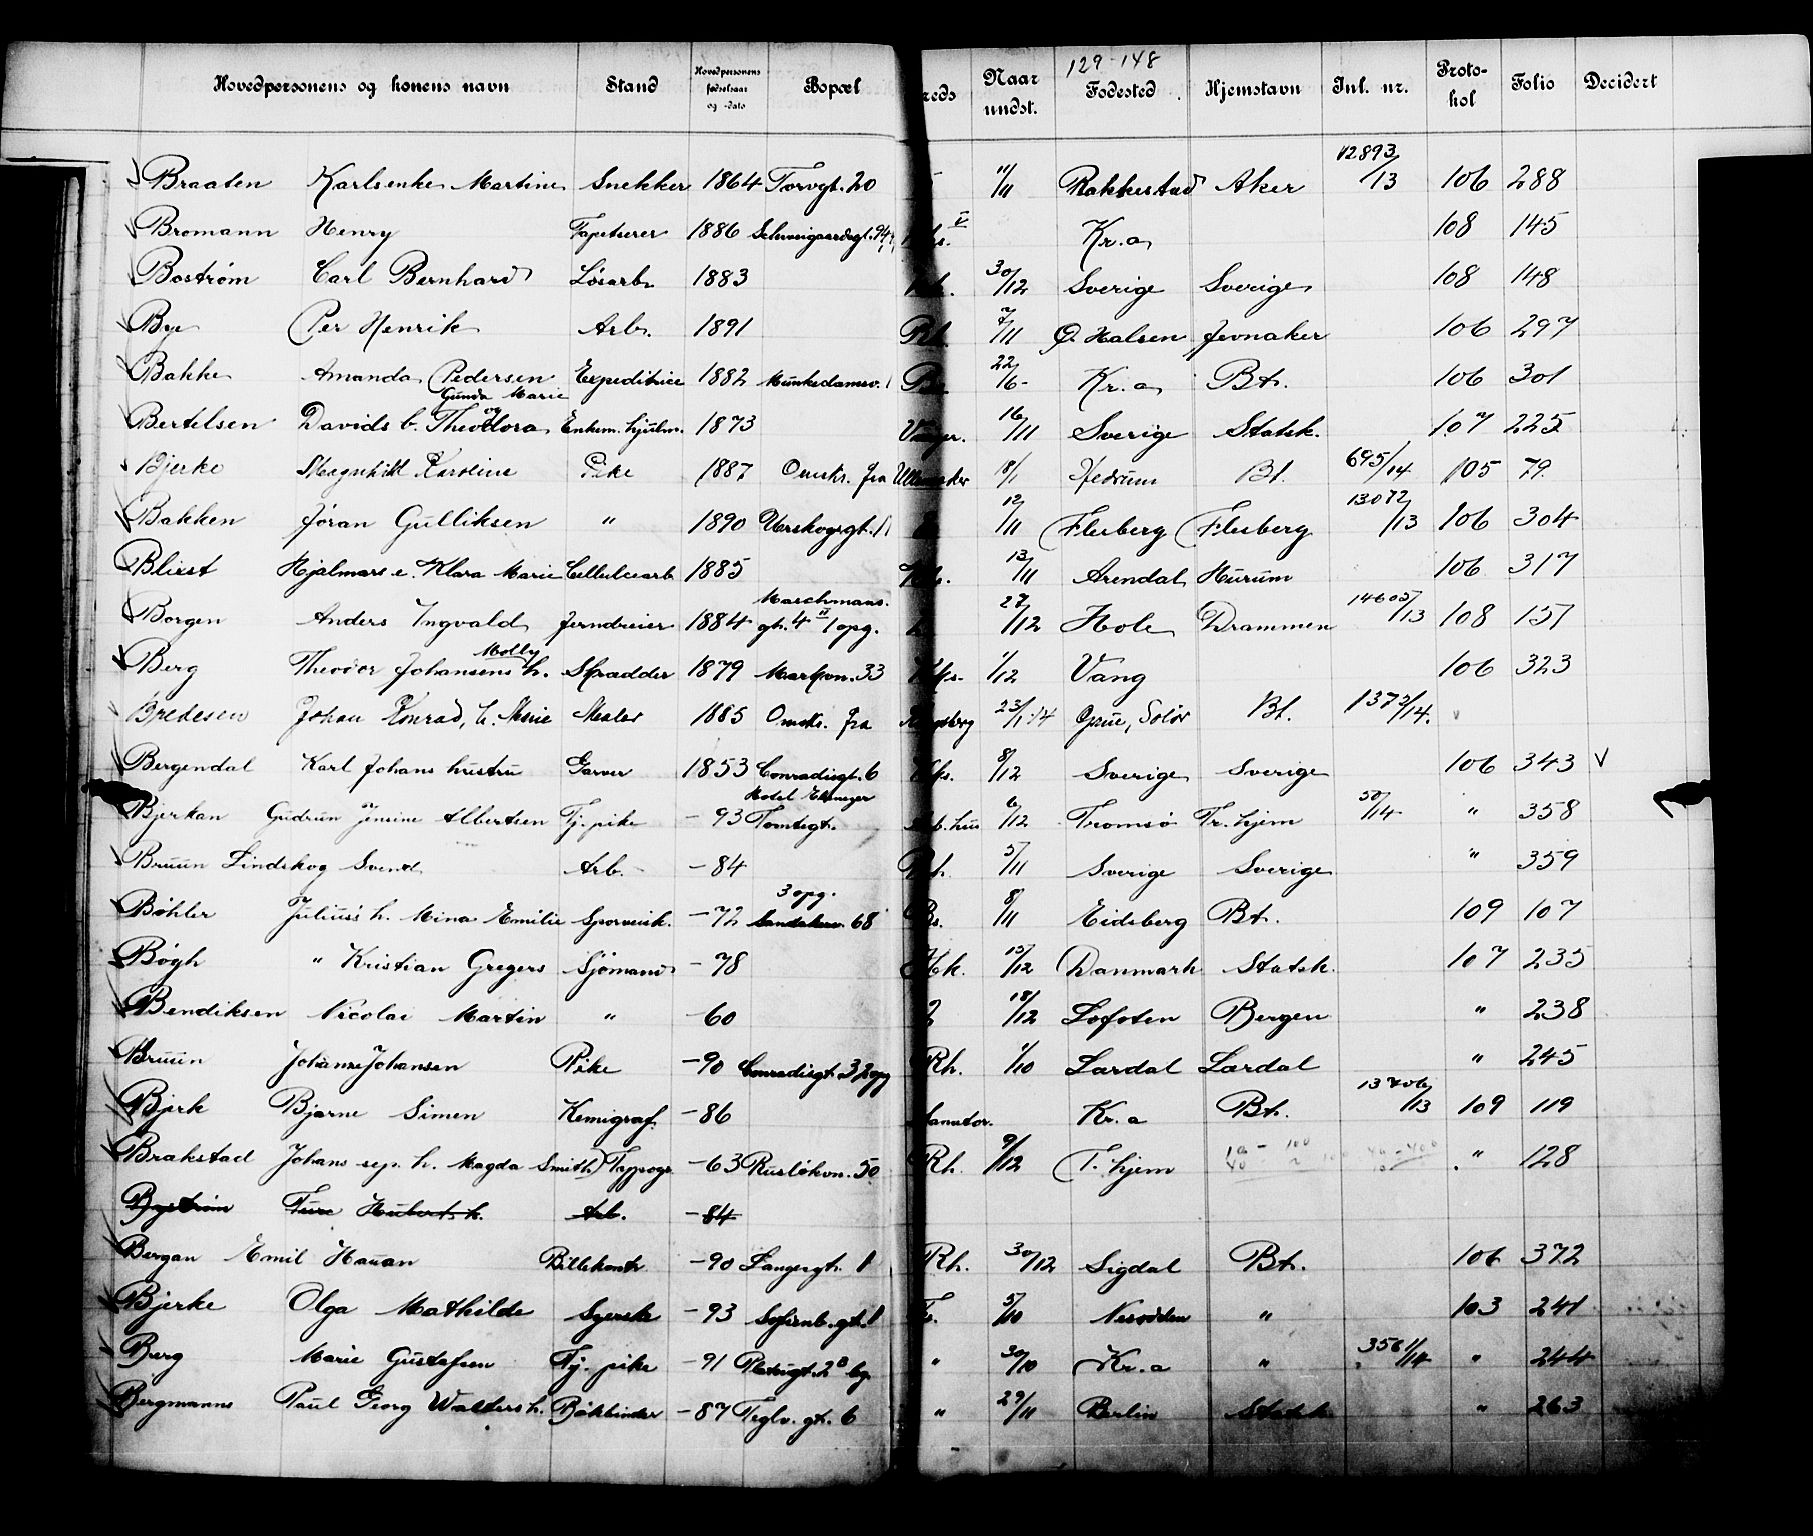 129-148
Hovedpersonens og konens navn Stand Hovedpersonens fødselsaar og -dato Bopæl reds Naar undst. Fødested Hjemstavn Jnl. nr. Proto-kol Folio Decidert
Braaten Karlsenke Martine Snekker 1864 Torvgt. 20 11/11 Rakkestad Aker 12893/13 106 288
Bromann Henry Tapetserer 1886 Schweigaardsgt. 94 Kr.a 108 145
Boström Carl Bernhard Løsarb 1883 30/12 Sverige Sverige 108 148
Bye Per Henrik Arb. 1891 7/11 Ø. Halsen Jevnaker 106 297
Bakke Amanda Pedersen Expeditrice 1882 Munkedamsv. 22/6 Kr.a Bt. 106 301
Bertelsen Davids b. Gunda Marie og Theodora Enkem. hjulm. 1873 16/11 Sverige Statsk. 107 225
Bjerke Magnhild Karoline Pike 1887 Omsk. fra Ullensaker 18/1 Hedrum Bt. 695/14 105 79
Bakken Jöran Gulliksen " 1890 12/11 Flesberg Flesberg 13072/13 106 304
Blixt Hjalmars e. Klara Marie Cellulosearb 1885 13/11 Arendal Hurum 106 317
Borgen Anders Ingvald Jerndreier 1884 Marschmans. gt. 4 II 1 opg. 27/12 Hole Drammen 14605/13 108 157
Berg Theodor Johansens h. Molly Skrædder 1879 Markvn. 33 1/12 Vang 106 323
Bredesen Johan Konrad, h. Marie Maler 1885 Omsk. fra Kongsberg 23/1 14 Grue, Solør Bt. 1373/14.
Bergendal Karl Johans hustru Garver 1853 Conradisgt. 6 8/12 Sverige Sverige 106 343 V
Bjerkan Gudrun Jensine Albertsen Tj. pike - 93 Hotel Ebenezer Tomtegt. 6/12 Tromsø Tr.hjem 50/14 " 358
Bruun Lindskog Svend Arb. - 84 Rh. 5/11 Sverige Sverige " 359
Bøhler Julius's h. Mina Emilie Sporveisk. - 72 3 opg. Sandakerv. 68 8/11 Eidsberg Bt. 109 107
Bøgh " Kristian Gregers Sjömand - 78 15/12 Danmark Statsk. 107 235
Bendiksen Nicolai Martin " - 60 18/12 Lofoten Bergen " 238
Bruun Johanne Johansen Pike - 90 Conradisgt. 3 2 opg Rh. 1/10 Lardal Lardal " 245
Bjerk Bjarne Simen Kemigraf. - 86 Sanator. Kr.a Bt. 13706/13 109 119
Brakstad Johans sep. h. Magda Smith - 63 Rusløkvn. 50 Rh. 9/12 T.hjem " 128
Byström Ture Huberts h. Arb. - 84
Bergan Emil Hauan Billetkontr - 90 Langesgt. 1 Rh. 30/12 Sigdal Bt. 106 372
Bjerke Olga Mathilde Syerske - 93 Sofienb. gt. 1 5/10 Nesodden " 103 241
Berg Marie Gustafsen Tj. pike - 91 " 30/10 Kr.a " 3561/14 " 244
Bergmanns Paul Georg Walters h. Bokbinder - 87 Teglv. gt. 6 " 29/11 Berlin Statsk. " 263